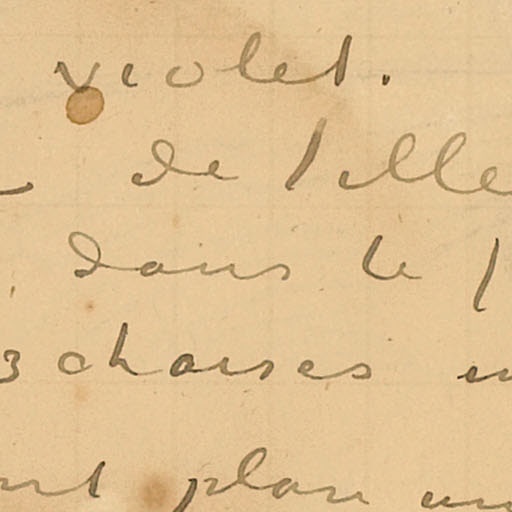 violet.
de lille
dans le
3 chaises
plan un